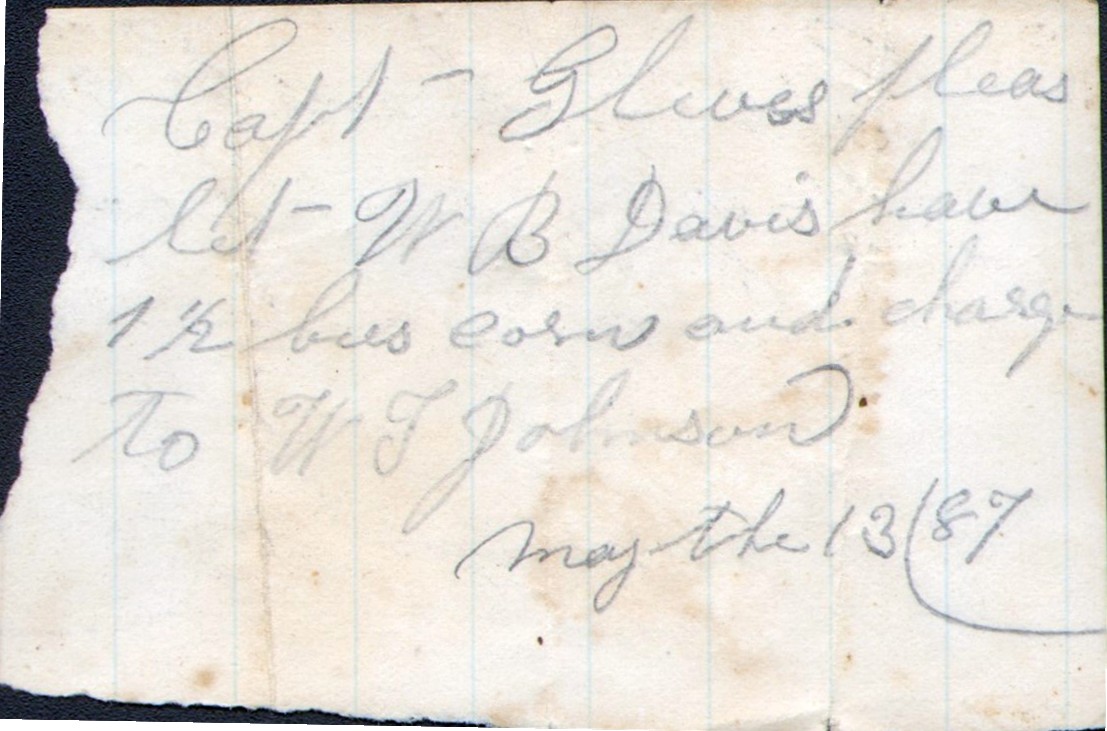 Capt - Glewes pleas
let - W B Davis have
1 1/2 bus corn and charge
To W T Johnson
may the 13 (87